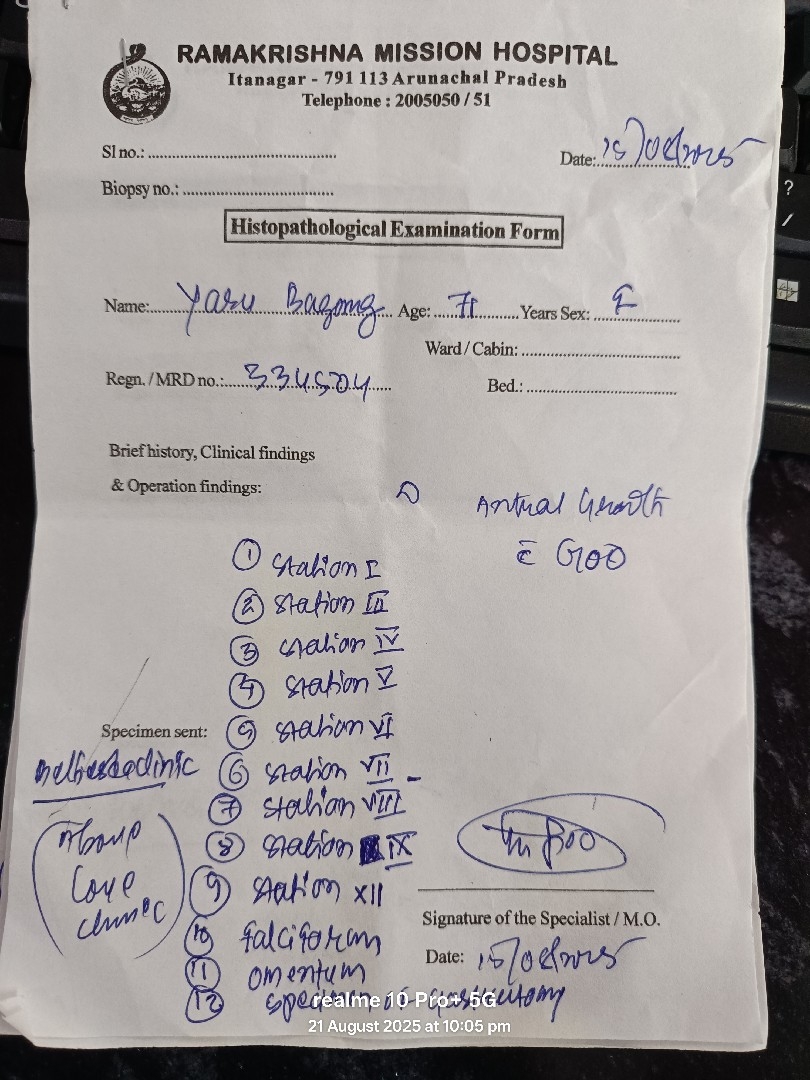 RAMAKRISHNA MISSION HOSPITAL
Itanagar - 791 113 Arunachal Pradesh
Telephone : 2005050 / 51
Sl no.:
Date: 15/08/2025
Biopsy no.:
Histopathological Examination Form
Name: Yaru Bagang Age: 71 Years Sex: F
Ward / Cabin:
Regn. / MRD no.: 334504
Bed.:
Brief history, Clinical findings
& Operation findings:
Antral Growth
c̄ GOO
① Station I
② Station III
③ Station IV
④ Station V
Specimen sent: ⑤ Station VI
⑥ Station VII
⑦ Station VIII
⑧ Station IX
⑨ Station XII
⑩ falciform
⑪ omentum
⑫ specimen of gastrectomy
clinic
Signature of the Specialist / M.O.
Date: 15/08/2025
realme 10 Pro+ 5G
21 August 2025 at 10:05 pm